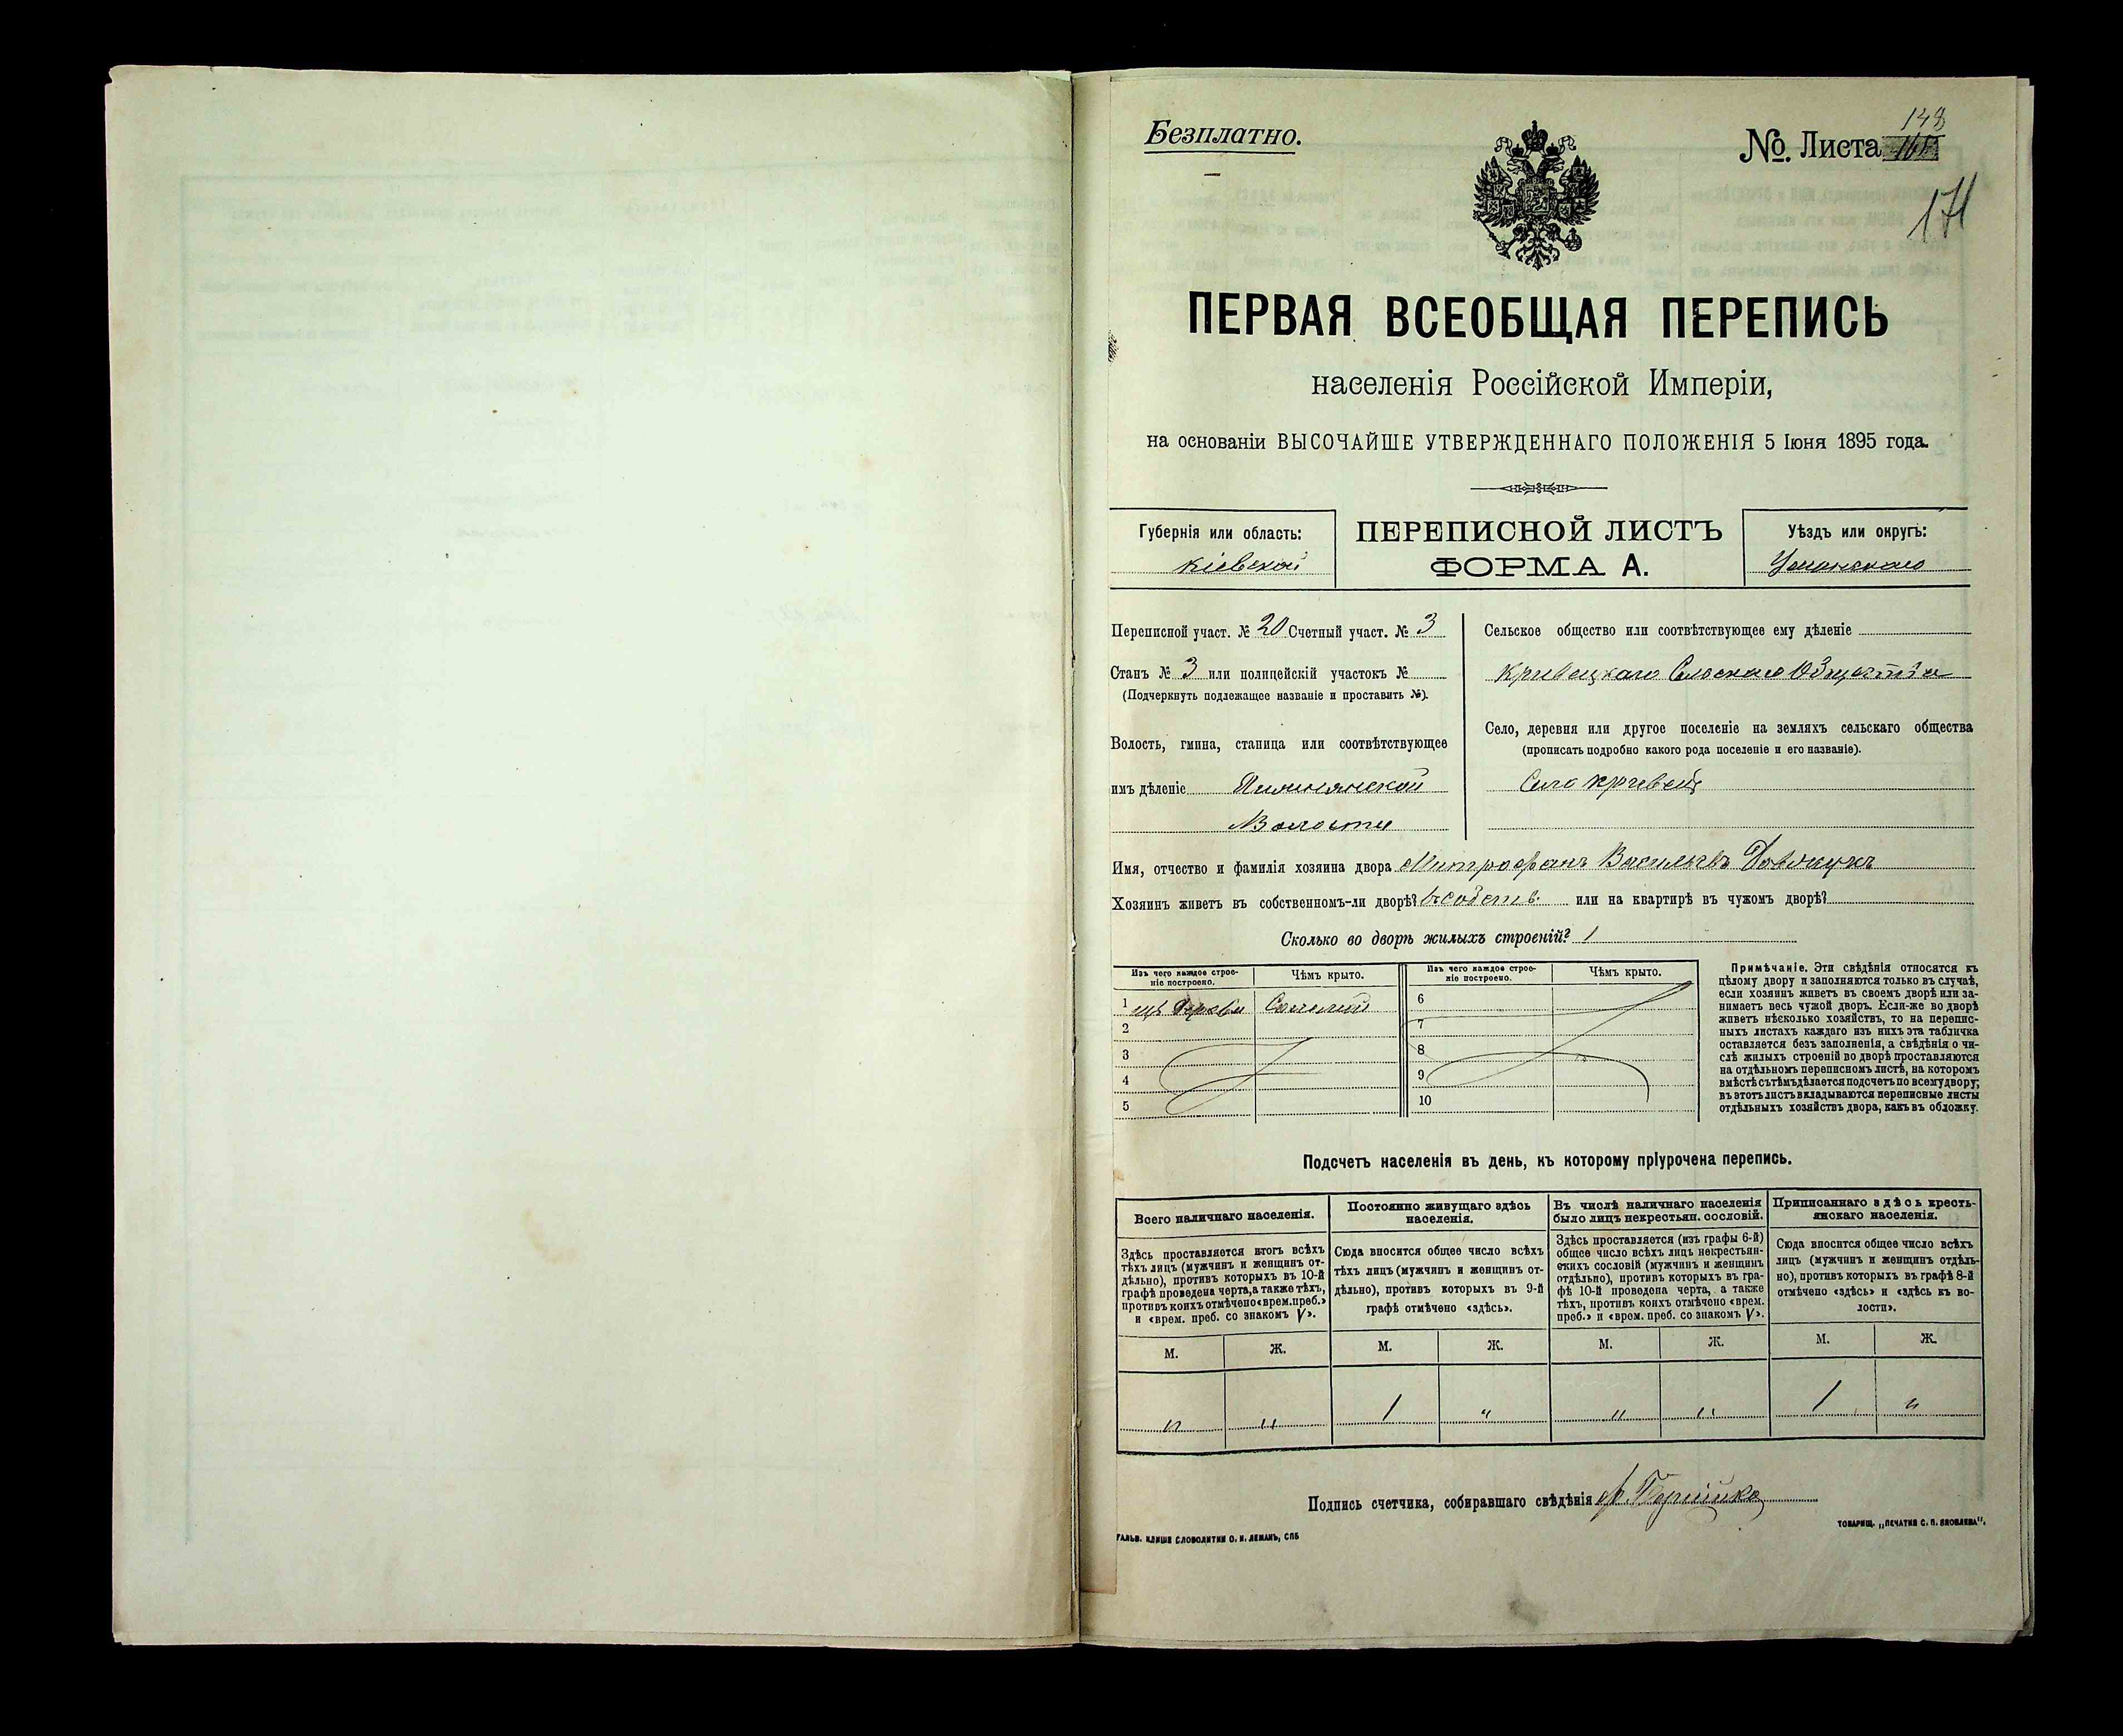 Безплатно.
№ Листа 148
171
ПЕРВАЯ ВСЕОБЩАЯ ПЕРЕПИСЬ
населенія Россійской Имперіи,
на основаніи ВЫСОЧАЙШЕ УТВЕРЖДЕННАГО ПОЛОЖЕНІЯ 5 Іюня 1895 года.
Губернія или область:
Кіевской
ПЕРЕПИСНОЙ ЛИСТЪ
ФОРМА А.
Уѣздъ или округъ:
Уманскаго
Переписной участ. № 20 Счетный участ. № 3
Станъ № 3 или полицейскій участокъ №
(Подчеркнуть подлежащее названіе и проставить №).
Волость, гмина, станица или соотвѣтствующее
имъ дѣленіе
Волости
Сельское общество или соотвѣтствующее ему дѣленіе
Кривецкаго Сельскаго Общества
Село, деревня или другое поселеніе на земляхъ сельскаго общества
(прописать подробно какого рода поселеніе и его названіе).
Село Кривець
Имя, отчество и фамилія хозяина двора Митрофанъ Васильевъ
Хозяинъ живетъ въ собственномъ-ли дворѣ? въ собств. или на квартирѣ въ чужомъ дворѣ?
Сколько во дворѣ жилыхъ строеній? 1
Изъ чего каждое строе-
ніе построено.
Чѣмъ крыто.
1 изъ дерева Соломой
2
3
4
5
Изъ чего каждое строе-
ніе построено.
Чѣмъ крыто.
6
7
8
9
10
Примѣчаніе. Эти свѣдѣнія относятся къ
цѣлому двору и заполняются только въ случаѣ,
если хозяинъ живетъ въ своемъ дворѣ или за-
нимаетъ весь чужой дворъ. Если-же во дворѣ
живетъ нѣсколько хозяйствъ, то на перепис-
ныхъ листахъ каждаго изъ нихъ эта табличка
оставляется безъ заполненія, а свѣдѣнія о чи-
слѣ жилыхъ строеній во дворѣ проставляются
на отдѣльномъ переписномъ листѣ, на которомъ
вмѣстѣ съ тѣмъ дѣлается подсчетъ по всему двору;
въ этотъ листъ вкладываются переписные листы
отдѣльныхъ хозяйствъ двора, какъ въ обложку.
Подсчетъ населенія въ день, къ которому пріурочена перепись.
Всего наличнаго населенія.
Здѣсь проставляется итогъ всѣхъ
тѣхъ лицъ (мужчинъ и женщинъ от-
дѣльно), противъ которыхъ въ 10-й
графѣ проведена черта, а также тѣхъ,
противъ коихъ отмѣчено «врем. преб.»
и «врем. преб. со знакомъ V».
М. Ж.
" "
Постоянно живущаго здѣсь
населенія.
Сюда вносится общее число всѣхъ
тѣхъ лицъ (мужчинъ и женщинъ от-
дѣльно), противъ которыхъ въ 9-й
графѣ отмѣчено «здѣсь».
М. Ж.
1 "
Въ числѣ наличнаго населенія
было лицъ некрестьян. сословій.
Здѣсь проставляется (изъ графы 6-й)
общее число всѣхъ лицъ некрестьян-
скихъ сословій (мужчинъ и женщинъ
отдѣльно), противъ которыхъ въ гра-
фѣ 10-й проведена черта, а также
тѣхъ, противъ коихъ отмѣчено «врем.
преб.» и «врем. преб. со знакомъ V».
М. Ж.
" "
Приписаннаго здѣсь кресть-
янскаго населенія.
Сюда вносится общее число всѣхъ
лицъ (мужчинъ и женщинъ отдѣль-
но), противъ которыхъ въ графѣ 8-й
отмѣчено «здѣсь» и «здѣсь въ во-
лости».
М. Ж.
1 "
Подпись счетчика, собиравшаго свѣдѣнія
ГАЛЬВ. КЛИШЕ СЛОВОЛИТНИ О. И. ЛЕМАНЪ, СПБ
ТОВАРИЩ. „ПЕЧАТНЯ С. П. ЯКОВЛЕВА".